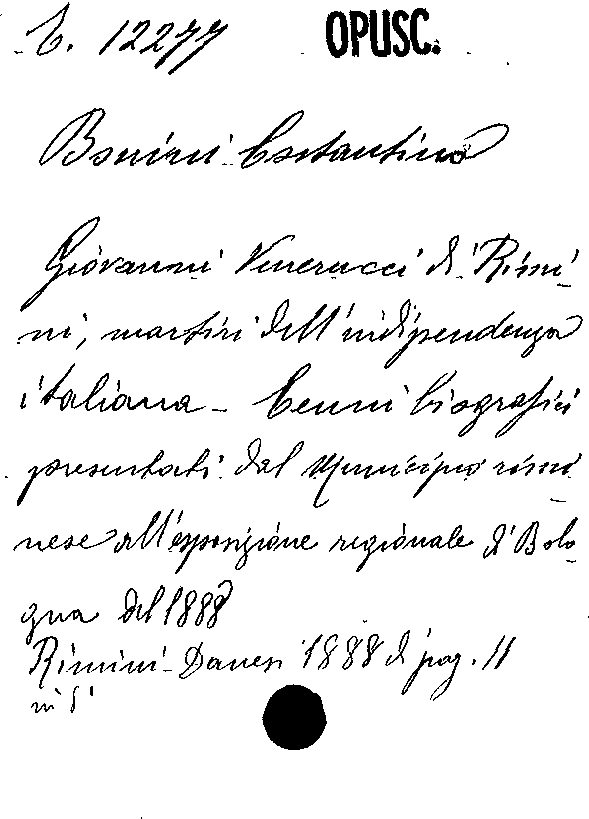 C. 12277 OPUSC.
Bonini Costantino
Giovanni Venerucci di Rimi-
ni, martiri dell'indipendenza
italiana - Cenni biografici
presentati dal Municipio rimi-
nese all'esposizione regionale di Bolo-
gna del 1888
Rimini - Danesi 1888 di pag. 11
in 8°